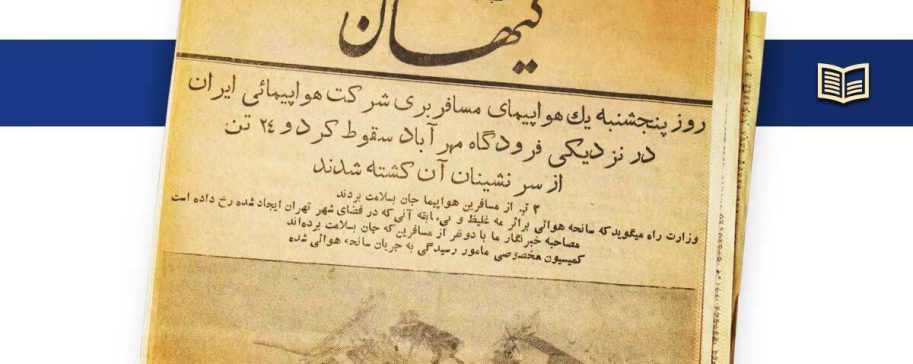 کیهان
روز پنجشنبه یك هواپیمای مسافربری شرکت هواپیمائی ایران
در نزدیکی فرودگاه مهرآباد سقوط کرد و ۲۴ تن
از سرنشینان آن کشته شدند
از مسافرین هواپیما جان بسلامت بردند
وزارت راه میگوید که سانحه هوائی براثر مه غلیظ و بی سابقه آنی که در فضای شهر تهران ایجاد شده رخ داده است
مصاحبه خبرنگار ما با دو نفر از مسافرین که جان بسلامت برده‌اند
کمیسیون مخصوصی مامور رسیدگی به جریان سانحه هوائی شده